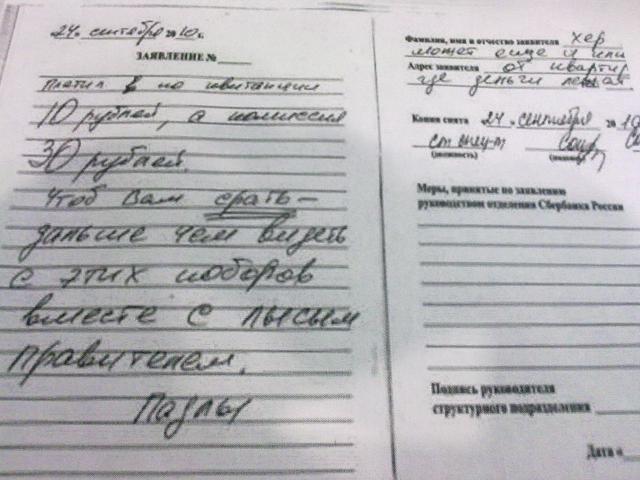 24. сентября 2010 г.
ЗАЯВЛЕНИЕ №
платил в по квитанции
10 рублей, а комиссия
30 рублей.
Чтоб Вам срать -
дальше чем видеть
с этих поборов
вместе с лысым
правителем.
Падлы
Фамилия, имя и отчество заявителя хер
может еще и или
Адрес заявителя от кварти
где деньги
Копия снята 24. сентября 20 10
ст
(должность)
Меры, принятые по заявлению
руководством отделения Сбербанка России
Подпись руководителя
структурного подразделения
Дата «